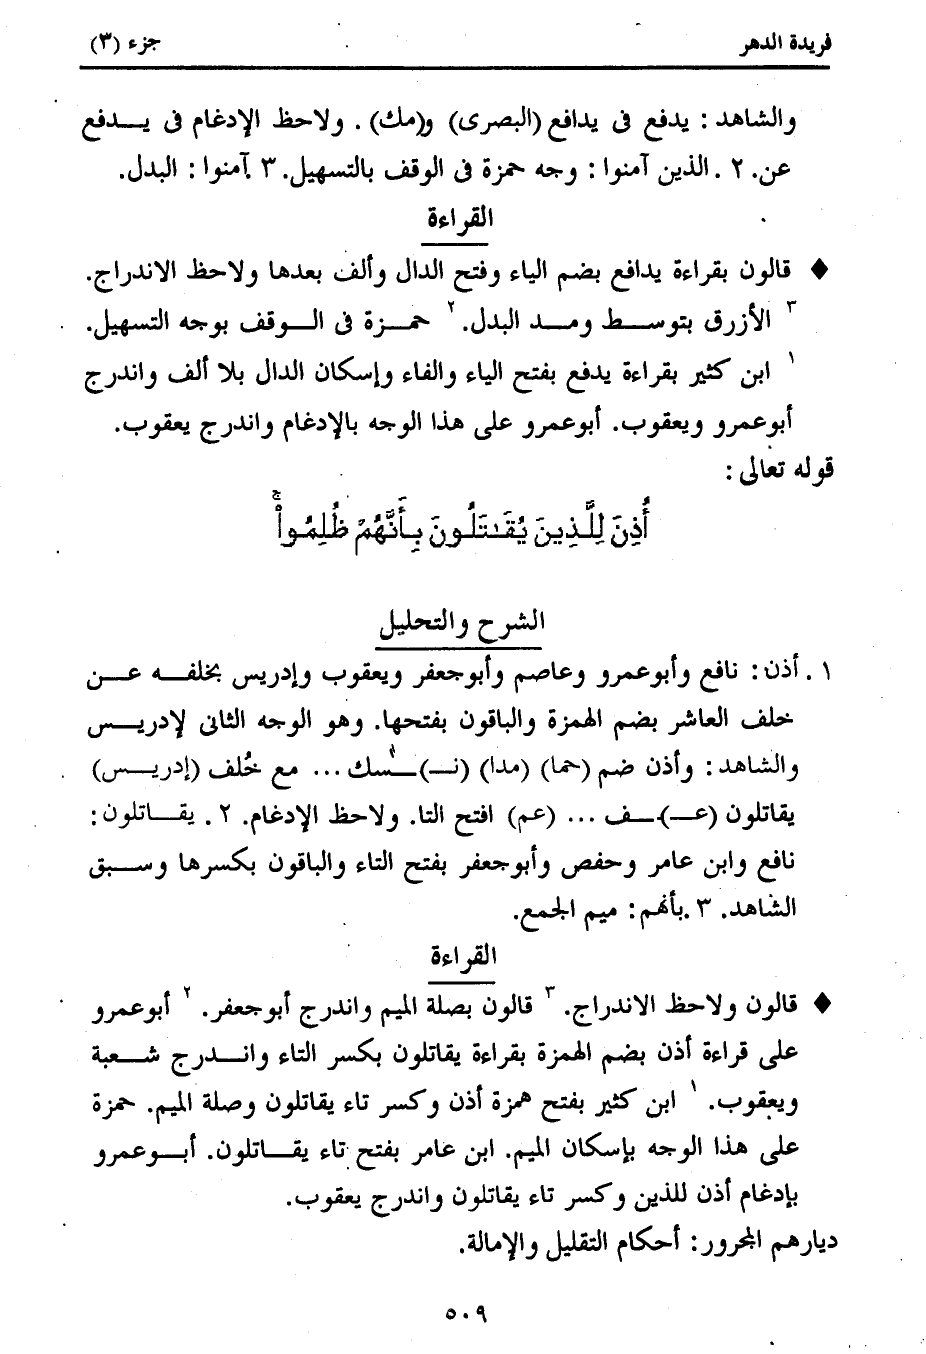 فريدة الدهر جزء (٣)
والشاهد : يدفع فى يدافع (البصرى) و(مك) . ولاحظ الإدغام فى يـــدفع
عن. ٢ .الذين آمنوا : وجه حمزة فى الوقف بالتسهيل. ٣ .آمنوا : البدل.
القراءة
♦ قالون بقراءة يدافع بضم الياء وفتح الدال وألف بعدها ولاحظ الاندراج.
٣ الأزرق بتوســـط ومـــد البدل. ٢ حمـــزة فى الـــوقف بوجه التسهيل.
١ ابن كثير بقراءة يدفع بفتح الياء والفاء وإسكان الدال بلا ألف واندرج
أبوعمرو ويعقوب. أبوعمرو على هذا الوجه بالإدغام واندرج يعقوب.
قوله تعالى :
أُذِنَ لِلَّذِينَ يُقَـٰتَلُونَ بِأَنَّهُمْ ظُلِمُوا۟ ۚ
الشرح والتحليل
١ . أذن : نافع وأبوعمرو وعاصم وأبوجعفر ويعقوب وإدريس بخلفـــه عـــن
خلف العاشر بضم الهمزة والباقون بفتحها. وهو الوجه الثانى لإدريـــس
والشاهد : وأذن ضم (حما) (مدا) (نـــ)ـــسك ... مع خُلف (إدريـــس)
يقاتلون (عـــ)ـــف ... (عم) افتح التا. ولاحظ الإدغام. ٢ . يقـــاتلون :
نافع وابن عامر وحفص وأبوجعفر بفتح التاء والباقون بكسرها وســـبق
الشاهد. ٣ .بأنهم : ميم الجمع.
القراءة
♦ قالون ولاحظ الاندراج. ٣ قالون بصلة الميم واندرج أبوجعفر. ٢ أبوعمرو
على قراءة أذن بضم الهمزة بقراءة يقاتلون بكسر التاء وانـــدرج شـــعبة
ويعقوب. ١ ابن كثير بفتح همزة أذن وكسر تاء يقاتلون وصلة الميم. حمزة
على هذا الوجه بإسكان الميم. ابن عامر بفتح تاء يقـــاتلون. أبـــوعمرو
بإدغام أذن للذين وكسر تاء يقاتلون واندرج يعقوب.
ديارهم المجرور : أحكام التقليل والإمالة.
٥٠٩